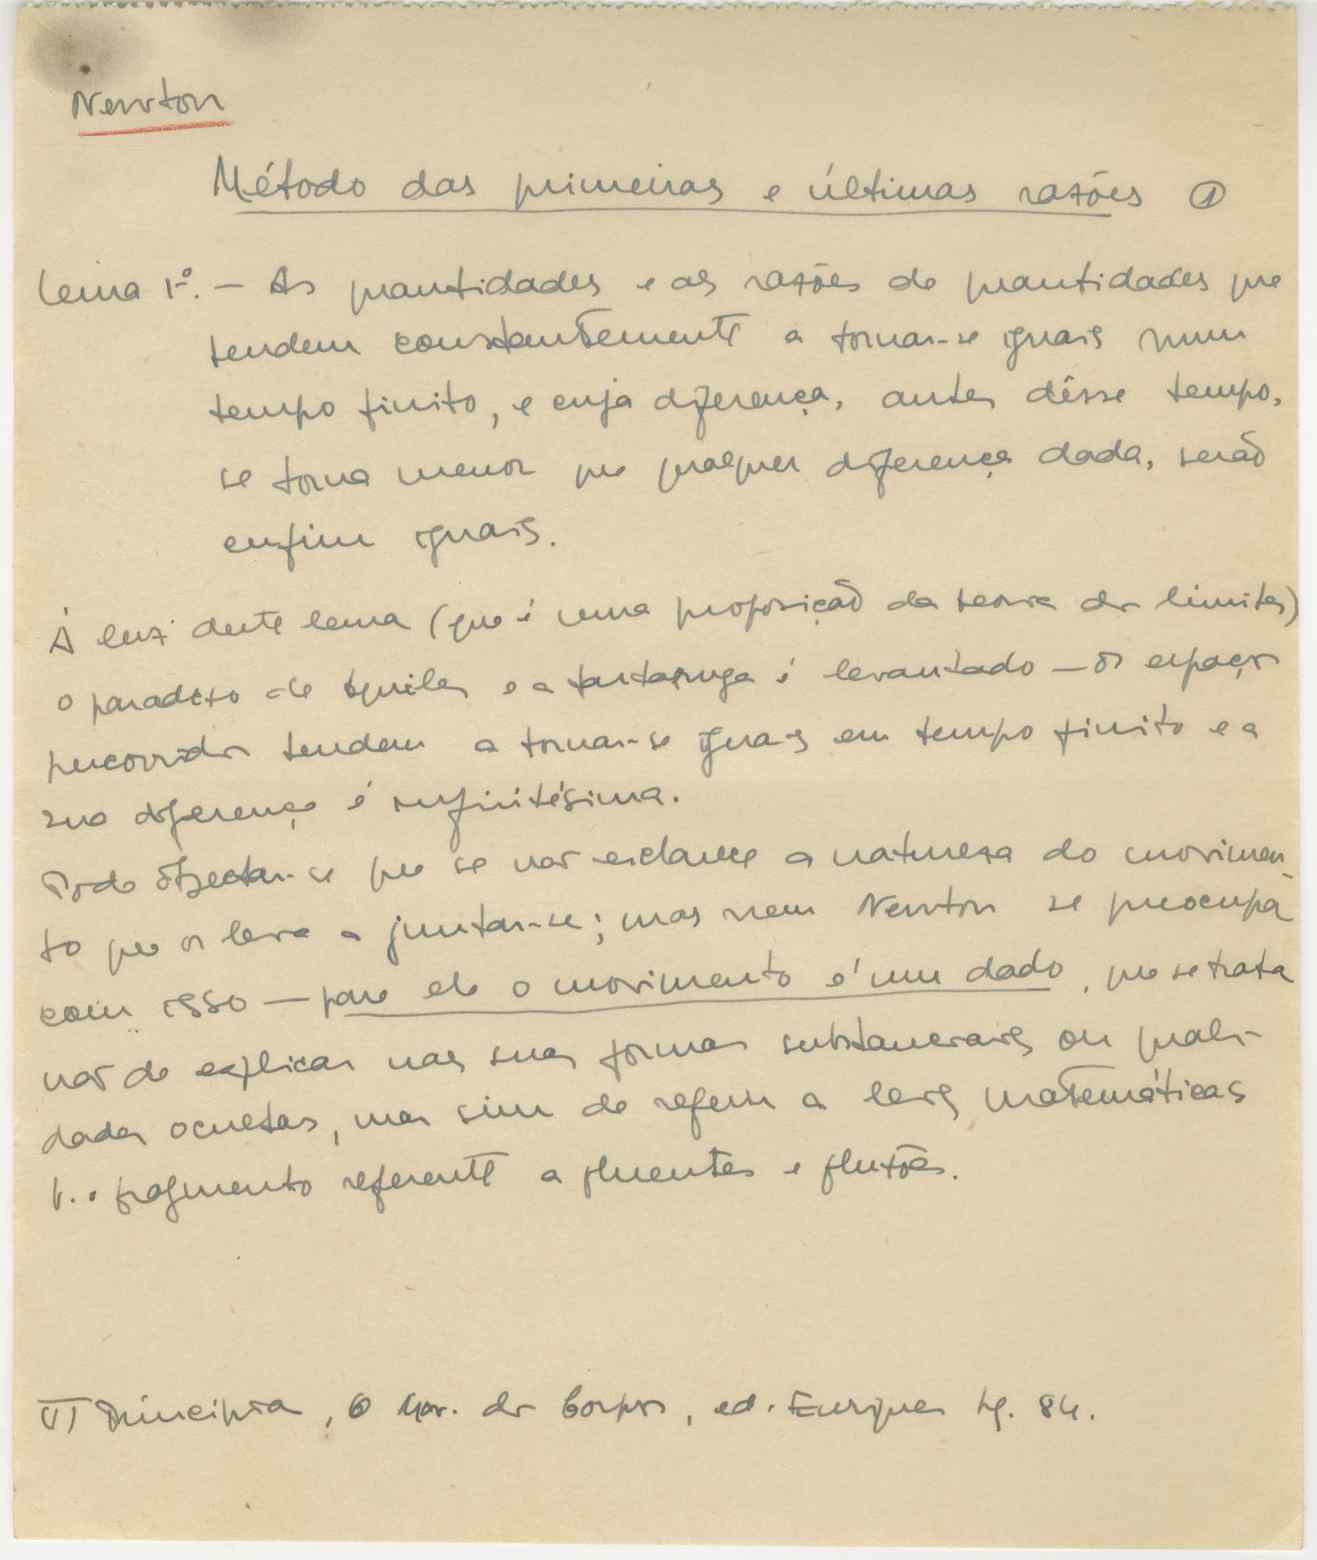 Newton
Método das primeiras e últimas razões ①
Lema 1º. — As quantidades e as razões de quantidades que
tendem constantemente a tornar-se iguais num
tempo finito, e cuja diferença, antes dêsse tempo,
se torna menor que qualquer diferença dada, serão
enfim iguais.
À luz deste lema (que é uma proposição da teoria dos limites)
o paradoxo de Aquiles e a tartaruga é levantado — os espaços
percorridos tendem a tornar-se iguais em tempo finito e a
sua diferença é infinitésima.
Pode objectar-se que se não esclarece a natureza do movimen-
to que os leva a juntar-se; mas nem Newton se preocupa
com isso — para ele o movimento é um dado, que se trata
não de explicar nas suas formas substanciais ou quali-
dades ocultas, mas sim de referir a leis matemáticas
V. o fragmento referente a fluentes e fluxões.
Principia, O Mov. dos Corpos, ed. Enriques pg. 84.